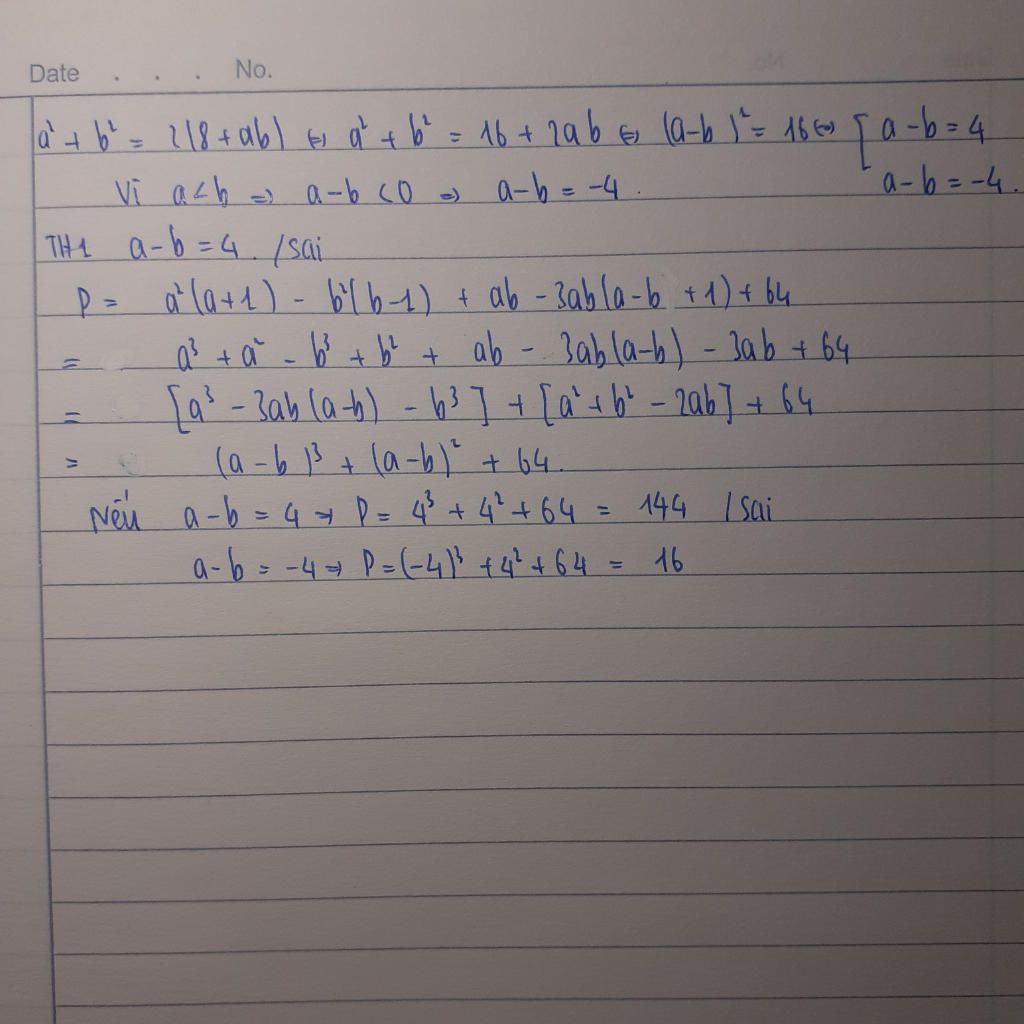 Date . . . No.
a² + b² = 2(8 + ab) ⇔ a² + b² = 16 + 2ab ⇔ (a-b)² = 16 ⇔ [ a-b = 4
Vì a < b ⇒ a-b < 0 ⇒ a-b = -4.
a-b = -4.
TH1 a-b = 4. /sai
P = a²(a+1) - b²(b-1) + ab - 3ab(a-b+1) + 64
= a³ + a² - b³ + b² + ab - 3ab(a-b) - 3ab + 64
= [a³ - 3ab(a-b) - b³] + [a² + b² - 2ab] + 64
= (a-b)³ + (a-b)² + 64.
Nếu a-b = 4 ⇒ P = 4³ + 4² + 64 = 144 /sai
a-b = -4 ⇒ P = (-4)³ + 4² + 64 = 16